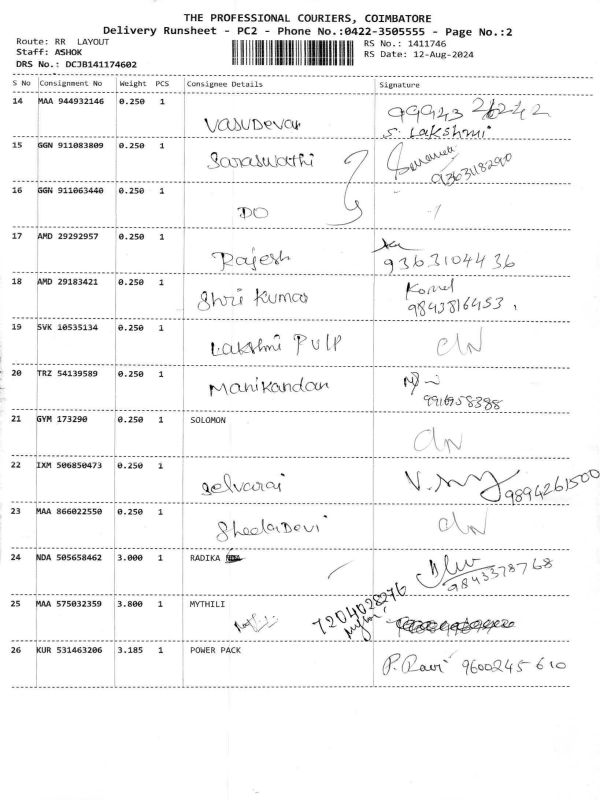 THE PROFESSIONAL COURIERS, COIMBATORE
Delivery Runsheet - PC2 - Phone No.:0422-3505555 - Page No.:2
Route: RR LAYOUT
Staff: ASHOK
DRS No.: DCJB141174602
RS No.: 1411746
RS Date: 12-Aug-2024
S No Consignment No Weight PCS Consignee Details Signature
14 MAA 944932146 0.250 1 Vasudevan
S. Lakshmi
15 GGN 911083809 0.250 1 Saraswathi
16 GGN 911063440 0.250 1 DO
17 AMD 29292957 0.250 1 Rajesh 9363104436
18 AMD 29183421 0.250 1 Shri Kumar
9843816453
19 SVK 10535134 0.250 1 Lakshmi PULP
20 TRZ 54139589 0.250 1 Manikandan
21 GYM 173290 0.250 1 SOLOMON
22 IXM 506850473 0.250 1 Selvaraj 9894261500
23 MAA 866022550 0.250 1 Sheela Devi
24 NDA 505658462 3.000 1 RADIKA
9843378768
25 MAA 575032359 3.800 1 MYTHILI 7204028276
26 KUR 531463206 3.185 1 POWER PACK P. Ravi 9600245610